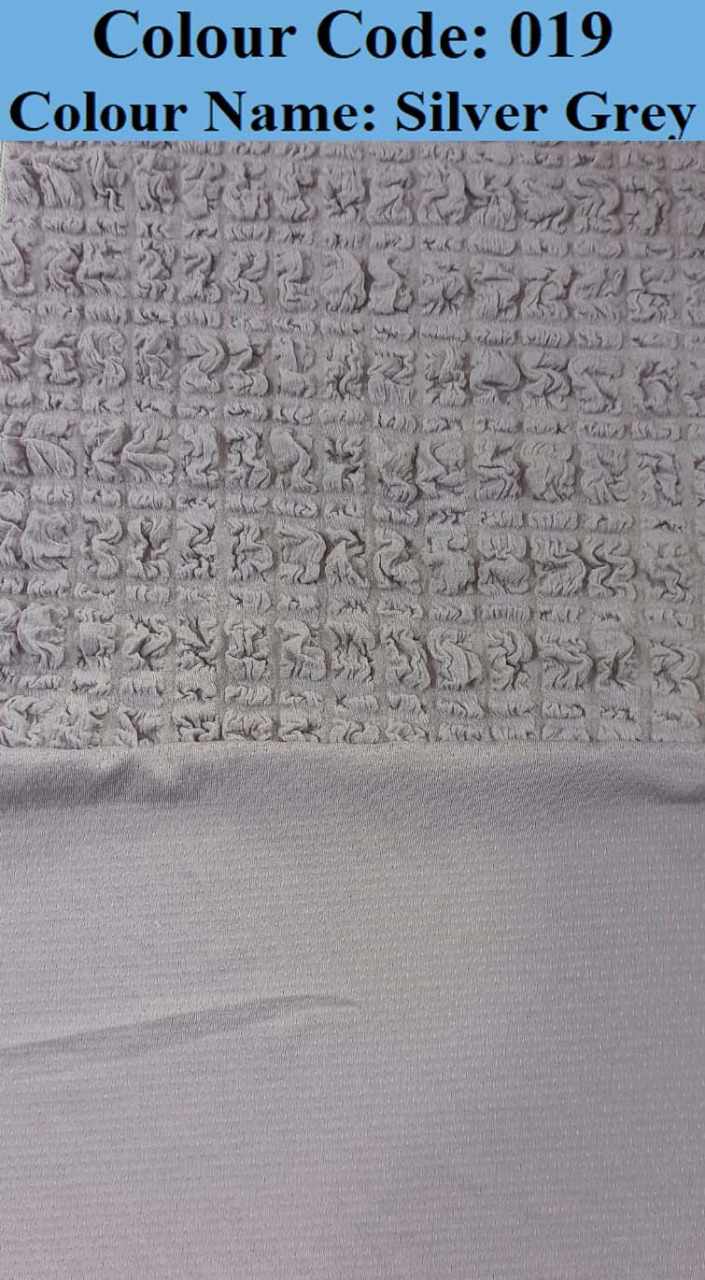 Colour Code: 019
Colour Name: Silver Grey